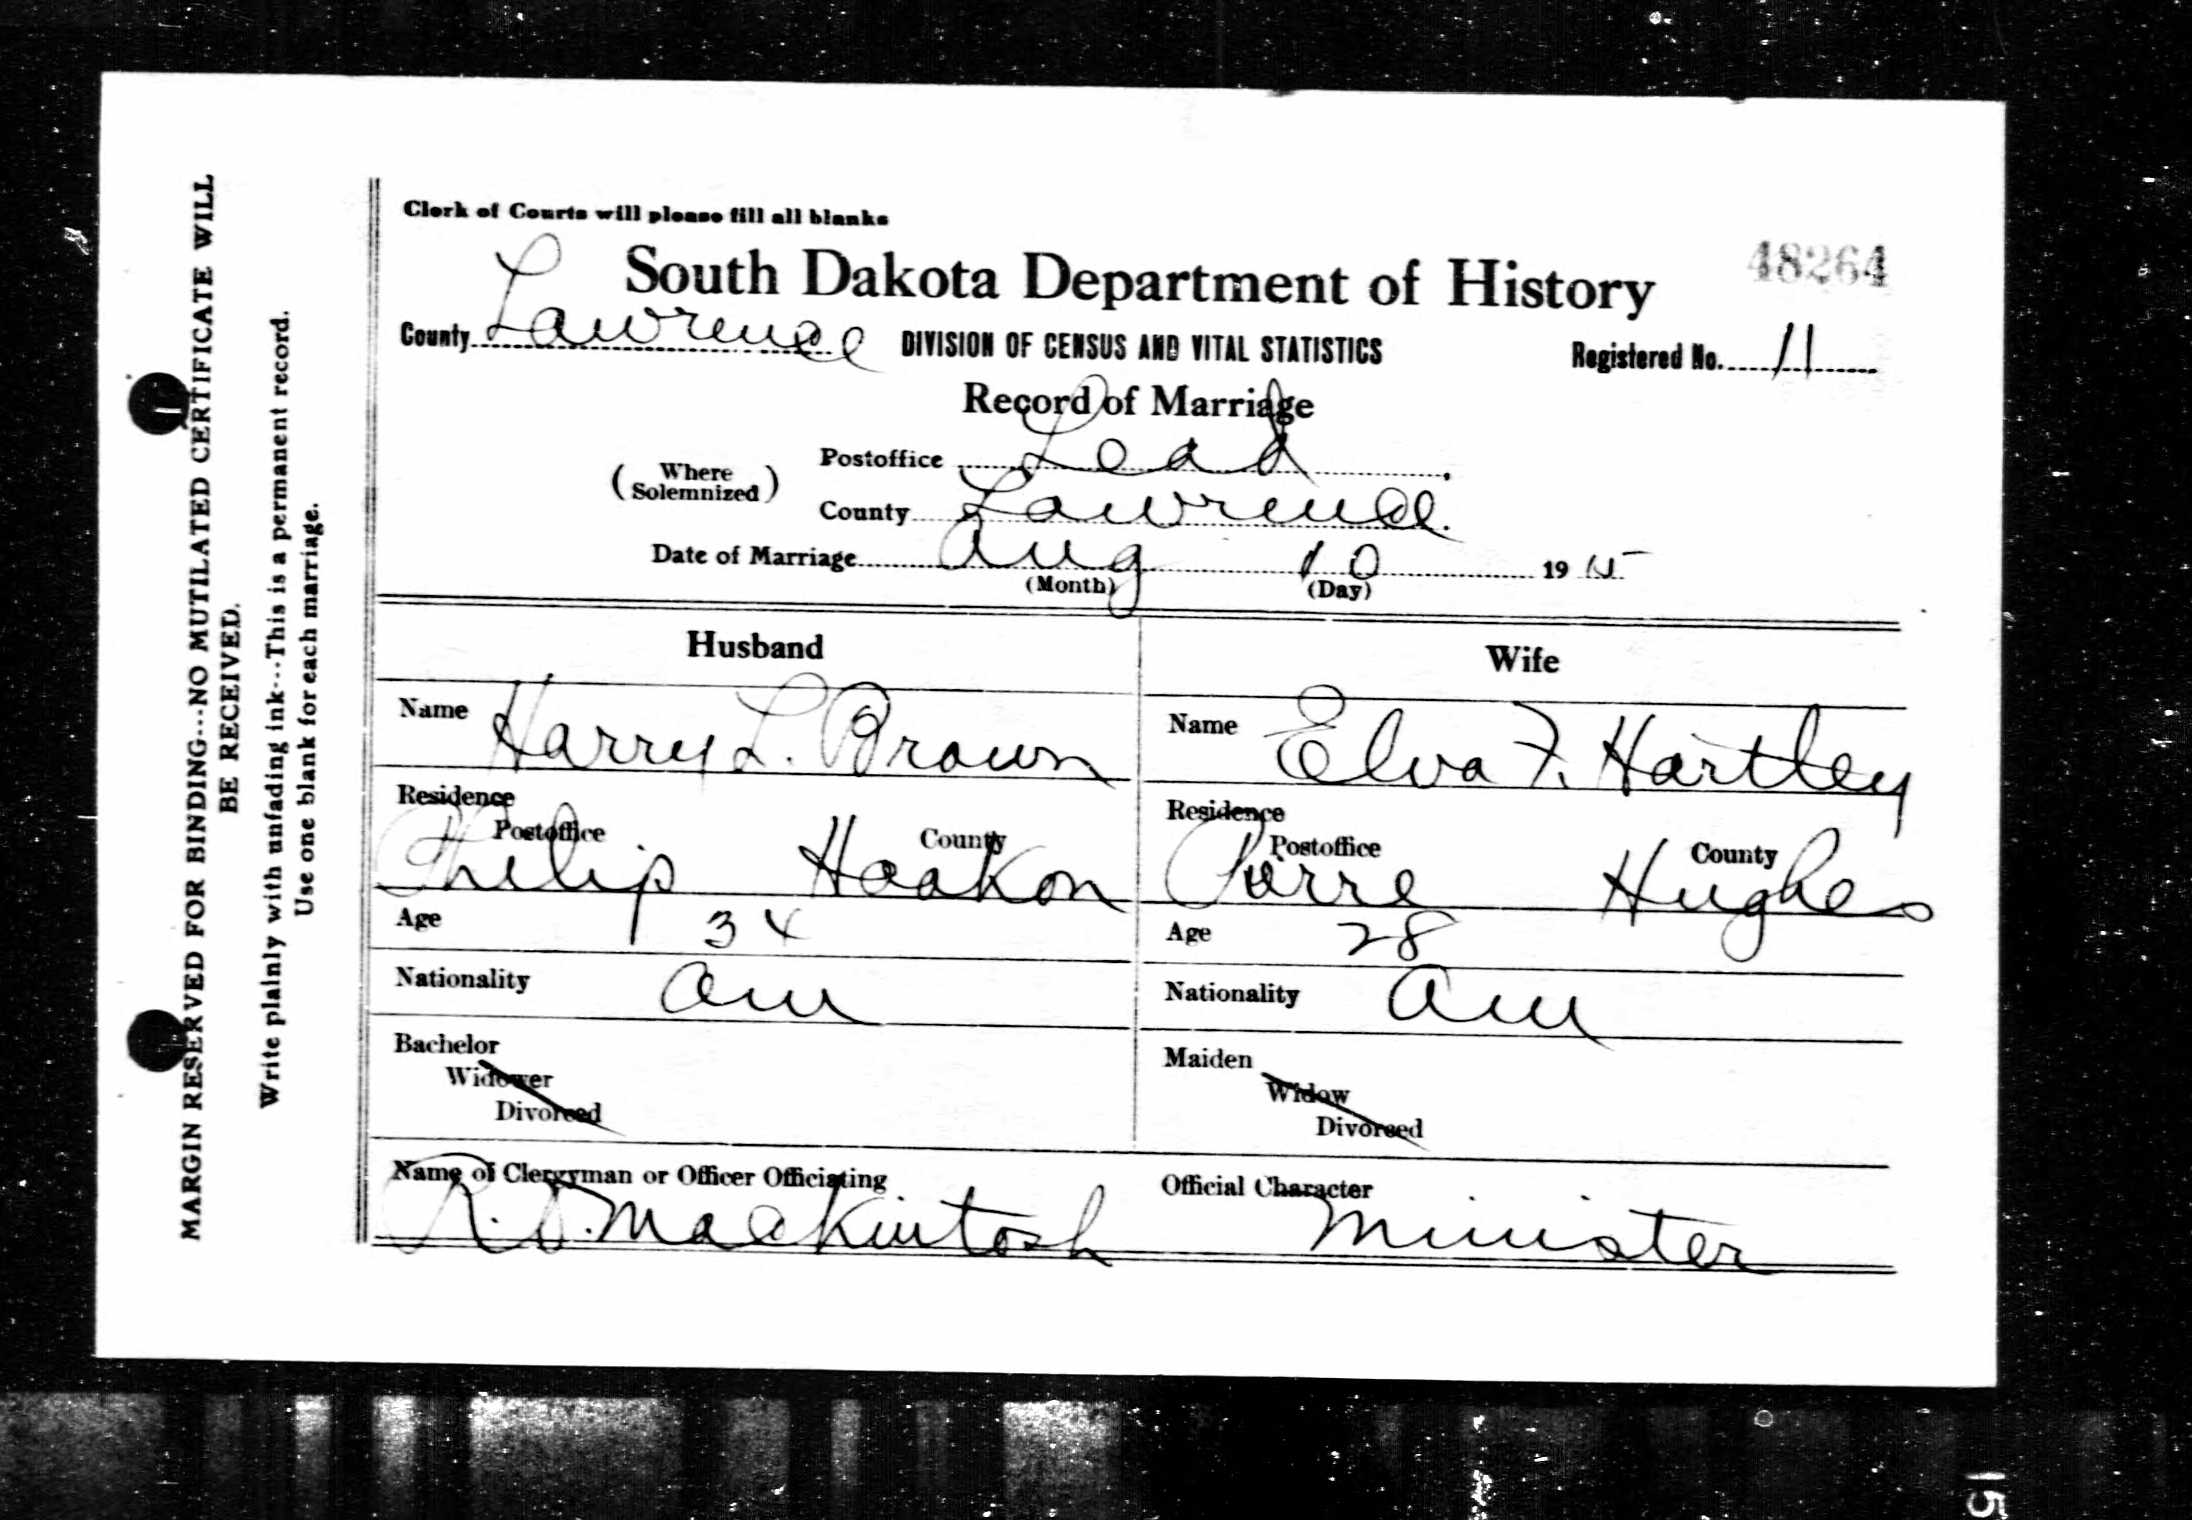 Clerk of Courts will please fill all blanks
South Dakota Department of History
48264
County Lawrence DIVISION OF CENSUS AND VITAL STATISTICS Registered No. 11
Record of Marriage
(Where Solemnized)
Postoffice Lead
County Lawrence.
Date of Marriage Aug 10 1915
(Month) (Day)
Husband Wife
Name Harry L. Brown Name Elva F. Hartley
Residence Residence
Postoffice County Postoffice County
Philip Haakon Pierre Hughes
Age 34 Age 28
Nationality Am Nationality Am
Bachelor Maiden
Widower Widow
Divorced Divorced
Name of Clergyman or Officer Officiating Official Character
R. D. Mackintosh Minister
MARGIN RESERVED FOR BINDING---NO MUTILATED CERTIFICATE WILL
BE RECEIVED.
Write plainly with unfading ink---This is a permanent record.
Use one blank for each marriage.
15